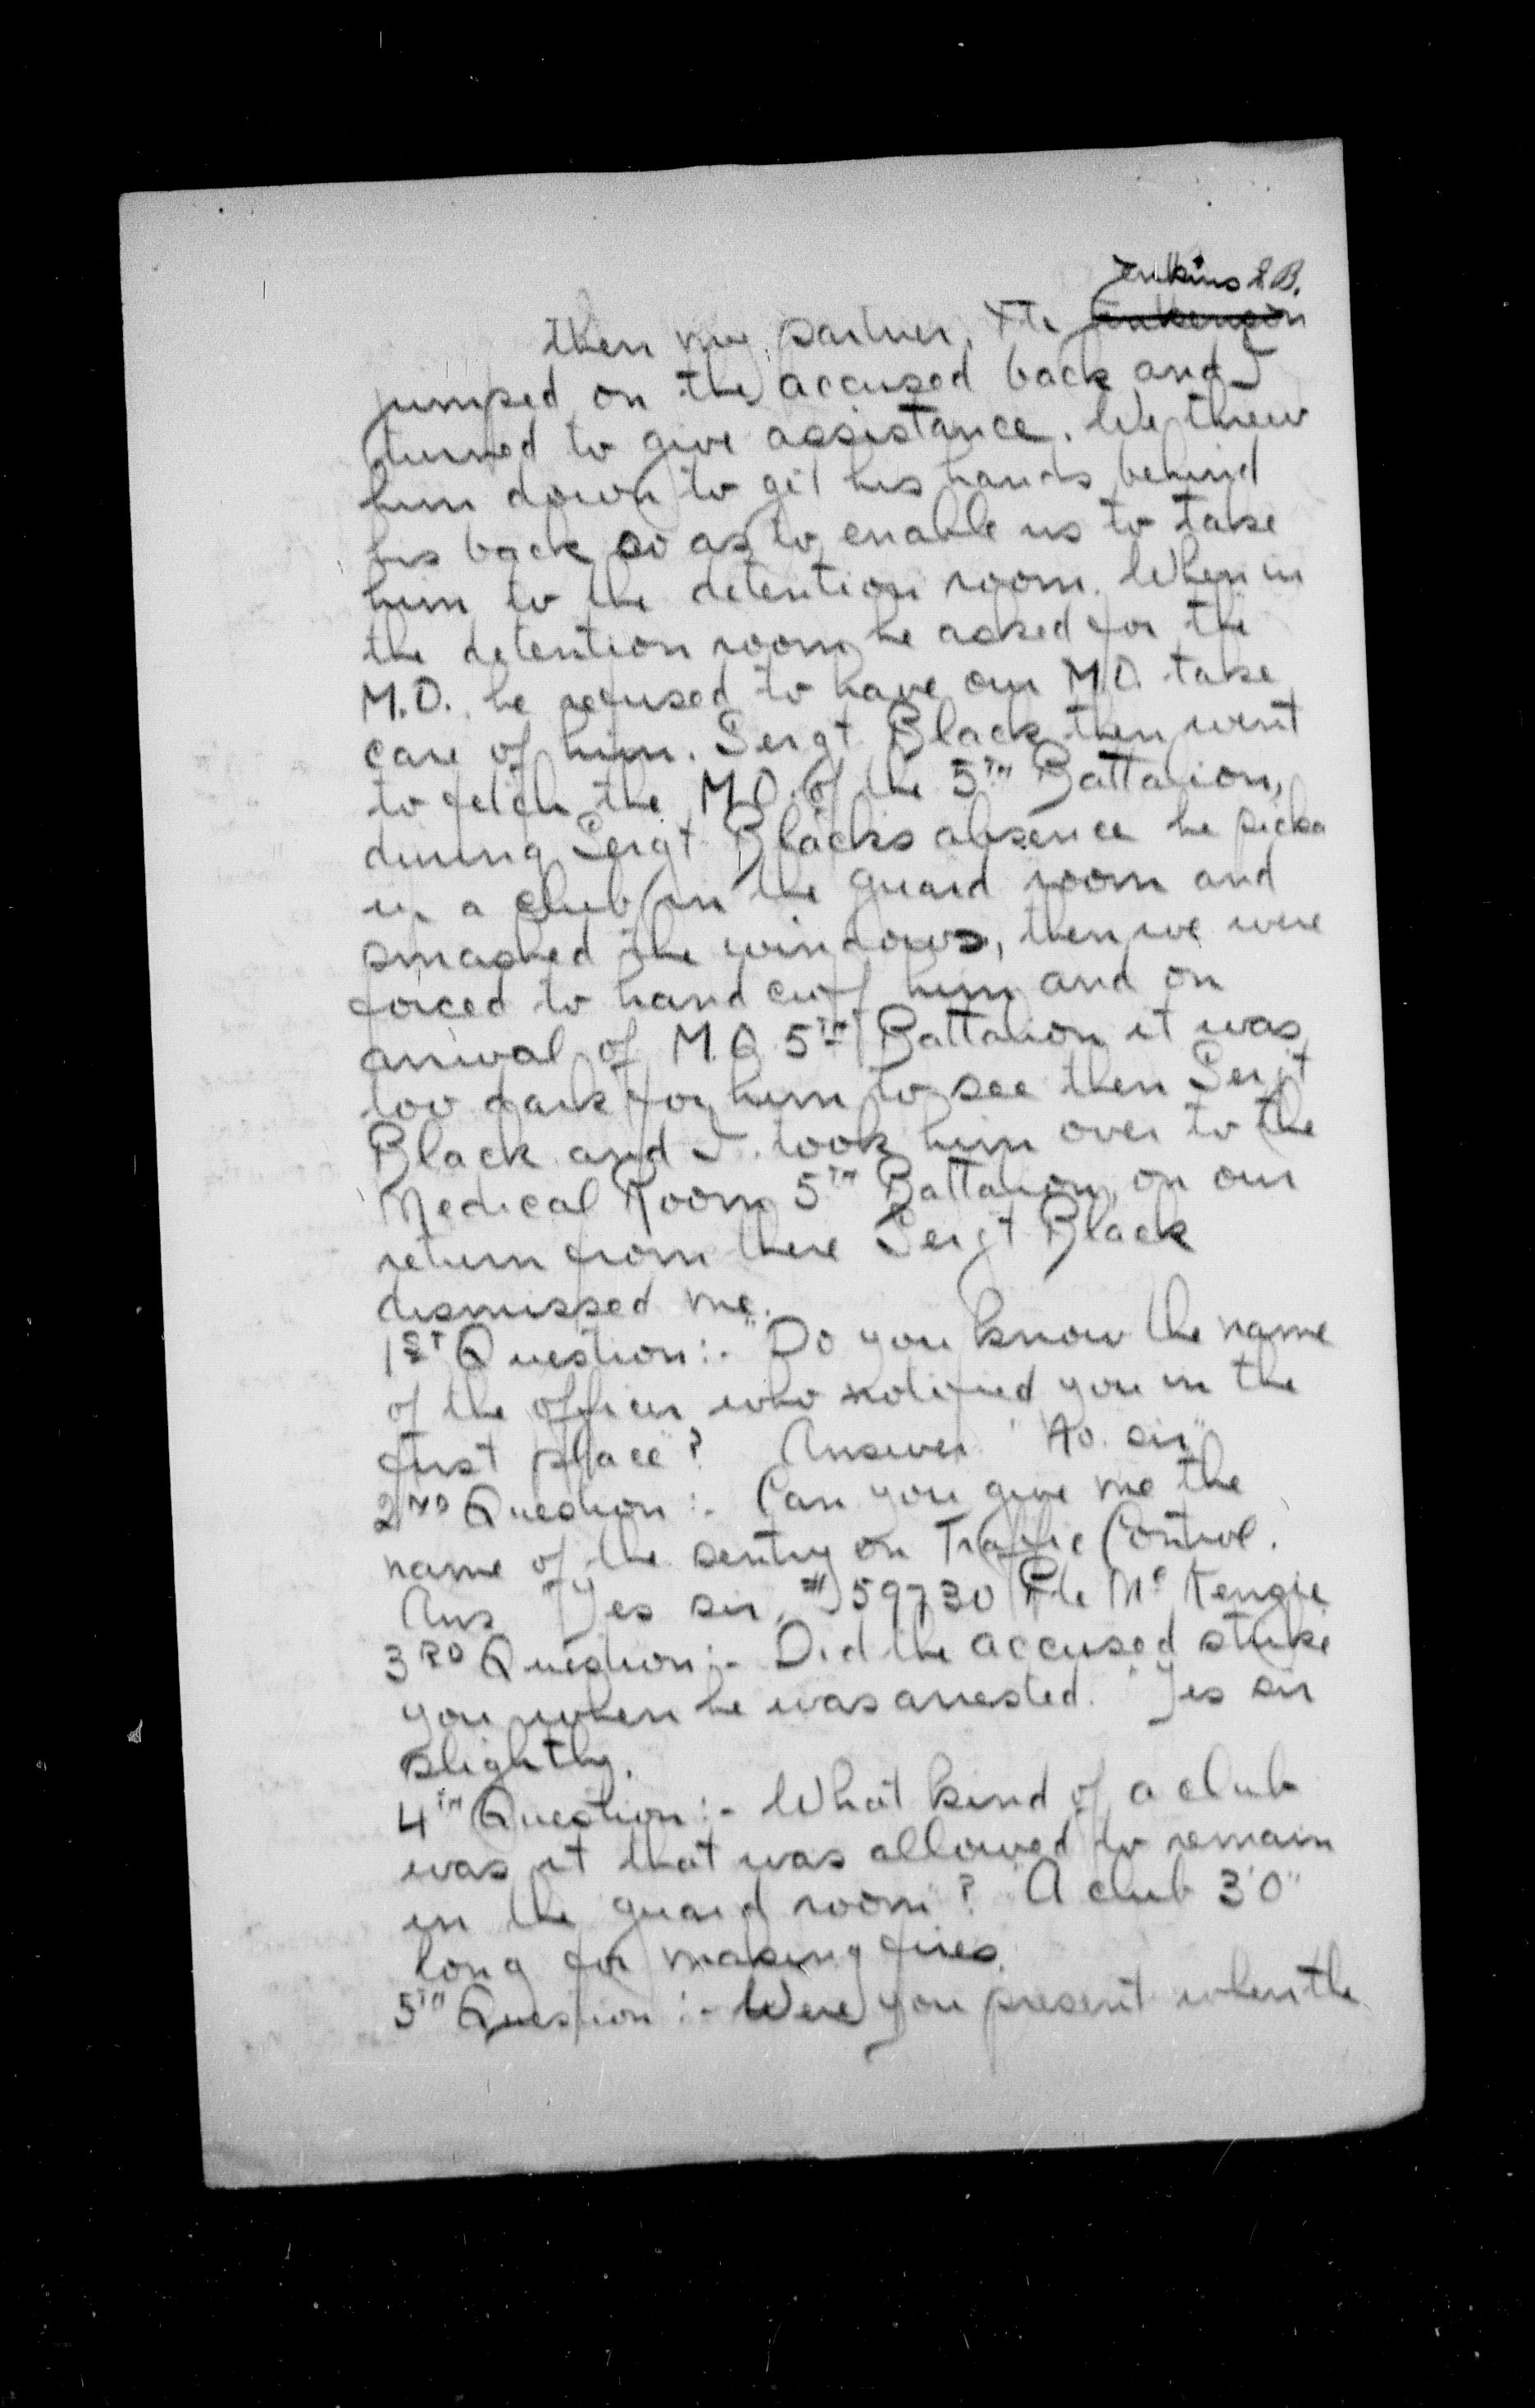 Jenkins S B.
then my partner, Pte Jenkenson
jumped on the accused back and I
turned to give assistance. We threw
him down to get his hands behind
his back so as to enable us to take
him to the detention room. When in
the detention room he asked for the
M.O. he refused to have our M.O. take
care of him. Sergt Black then went
to fetch the M.O. of the 5TH Battalion,
during Sergt Blacks absence he picked
up a club in the guard room and
smashed the windows, then we were
forced to hand cuff him and on
arrival of M.O. 5TH Battalion it was
too dark for him to see then Sergt
Black and I took him over to the
Medical Room 5TH Battalion, on our
return from there Sergt Black
dismissed me.
1ST Question:- "Do you know the name
of the officer who notified you in the
first place"? Answer "No sir"
2ND Question:- Can you give me the
name of the sentry on Traffic Control.
Ans "Yes sir, # 59730 Pte McKenzie
3RD Question:- Did the accused strike
you when he was arrested. "Yes sir
slightly.
4TH Question:- What kind of a club
was it that was allowed to remain
in the guard room"? "A club 3'0"
long for making fires.
5TH Question:- Were you present when the